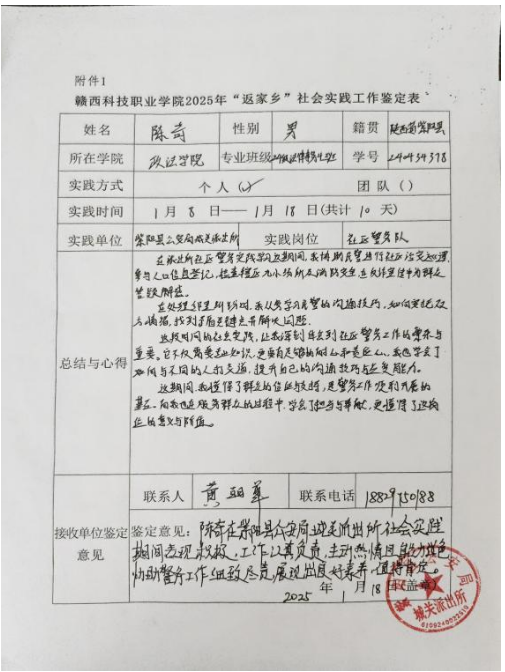 附件1
赣西科技职业学院2025年“返家乡”社会实践工作鉴定表
姓名 陈奇 性别 男 籍贯 陕西省紫阳县
所在学院 政法学院 专业班级 学号
实践方式 个人(✓) 团队()
实践时间 1月8日——1月18日(共计10天)
实践单位 紫阳县公安局城关派出所 实践岗位 社区警务队
总结与心得
在派出所社区警务实践学习这期间,我协助民警进行社区治安
参与人口信息登记,检查辖区九小场所及消防安全,在反诈宣传中为群众
答疑解惑。
在处理邻里纠纷时,我认真学习民警的沟通技巧,如何安抚双
方情绪,找到矛盾关键点并解决问题。
这段时间的社会实践,让我深刻体会到社区警务工作的繁杂与
重要。它不仅需要专业知识,更要有足够的耐心和责任心。我也学会了
如何与不同的人打交道,提升自己的沟通技巧与应变能力。
这期间,我懂得了群众的信任与支持,是警务工作顺利开展的
基石。而我也在服务群众的过程中,学会了担当与奉献,更懂得了这份
的意义与价值。
联系人 黄 联系电话
接收单位鉴定意见
鉴定意见:陈奇在紫阳县公安局城关派出所社会实践
期间表现积极,工作认真负责,主动热情且能力出色
协助警务工作细致尽责,展现出良好素养,值得肯定。
2025年1月18日(盖章)
城关派出所